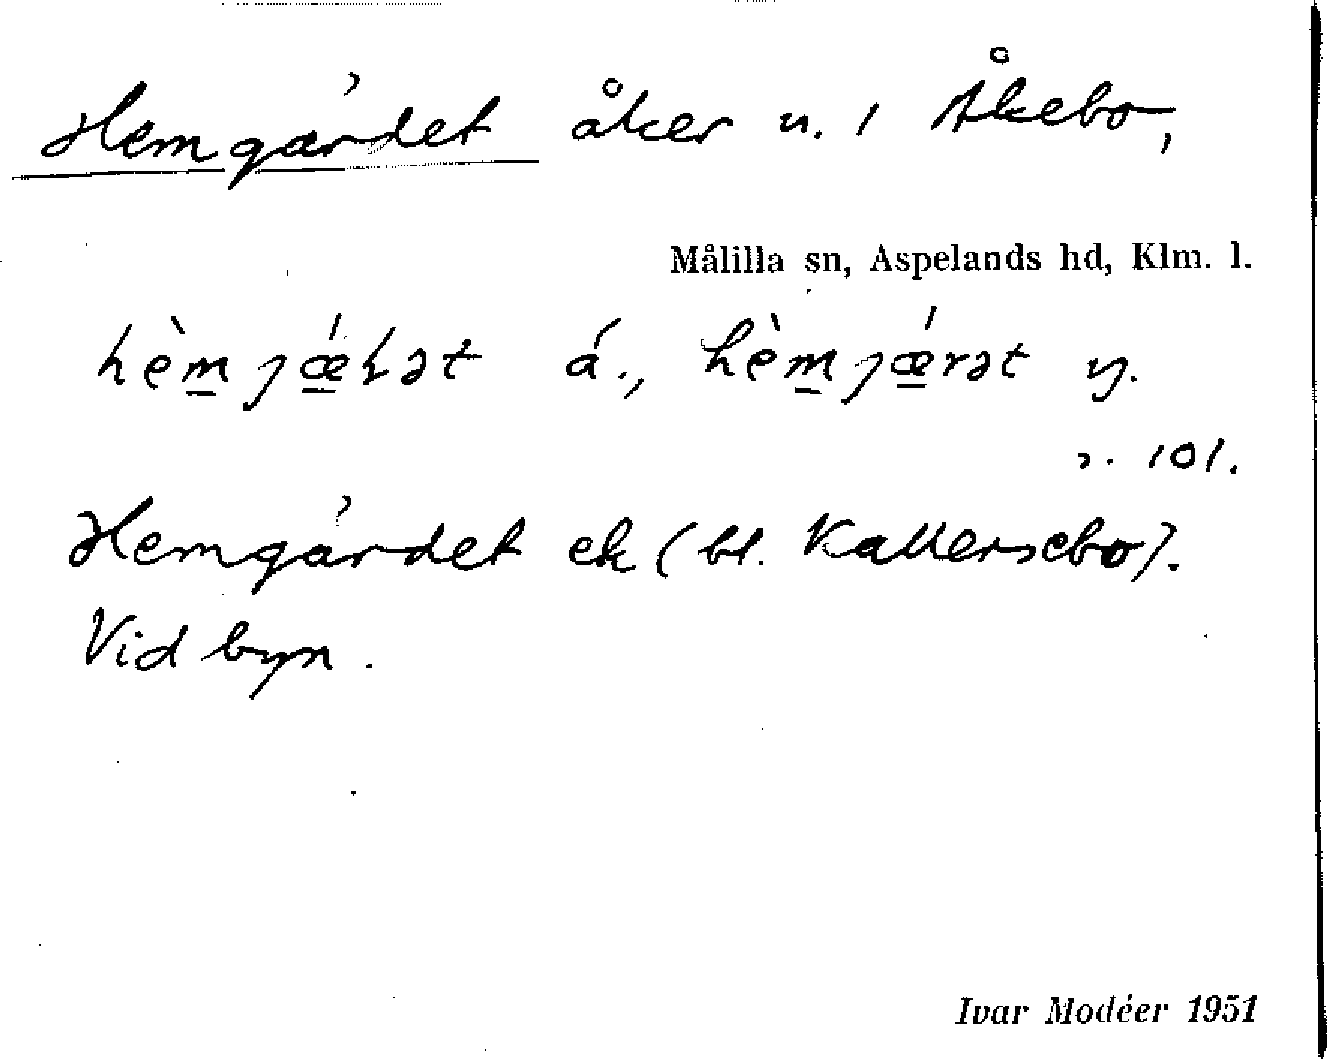 Hemgärdet åker n. 1 Åkebo,
Målilla sn, Aspelands hd, Klm. l.
hèmjǽɽət á., hèmjǽrət y.
r. 101.
Hemgärdet ek (bl. Kallersebo).
Vid byn.
Ivar Modéer 1951